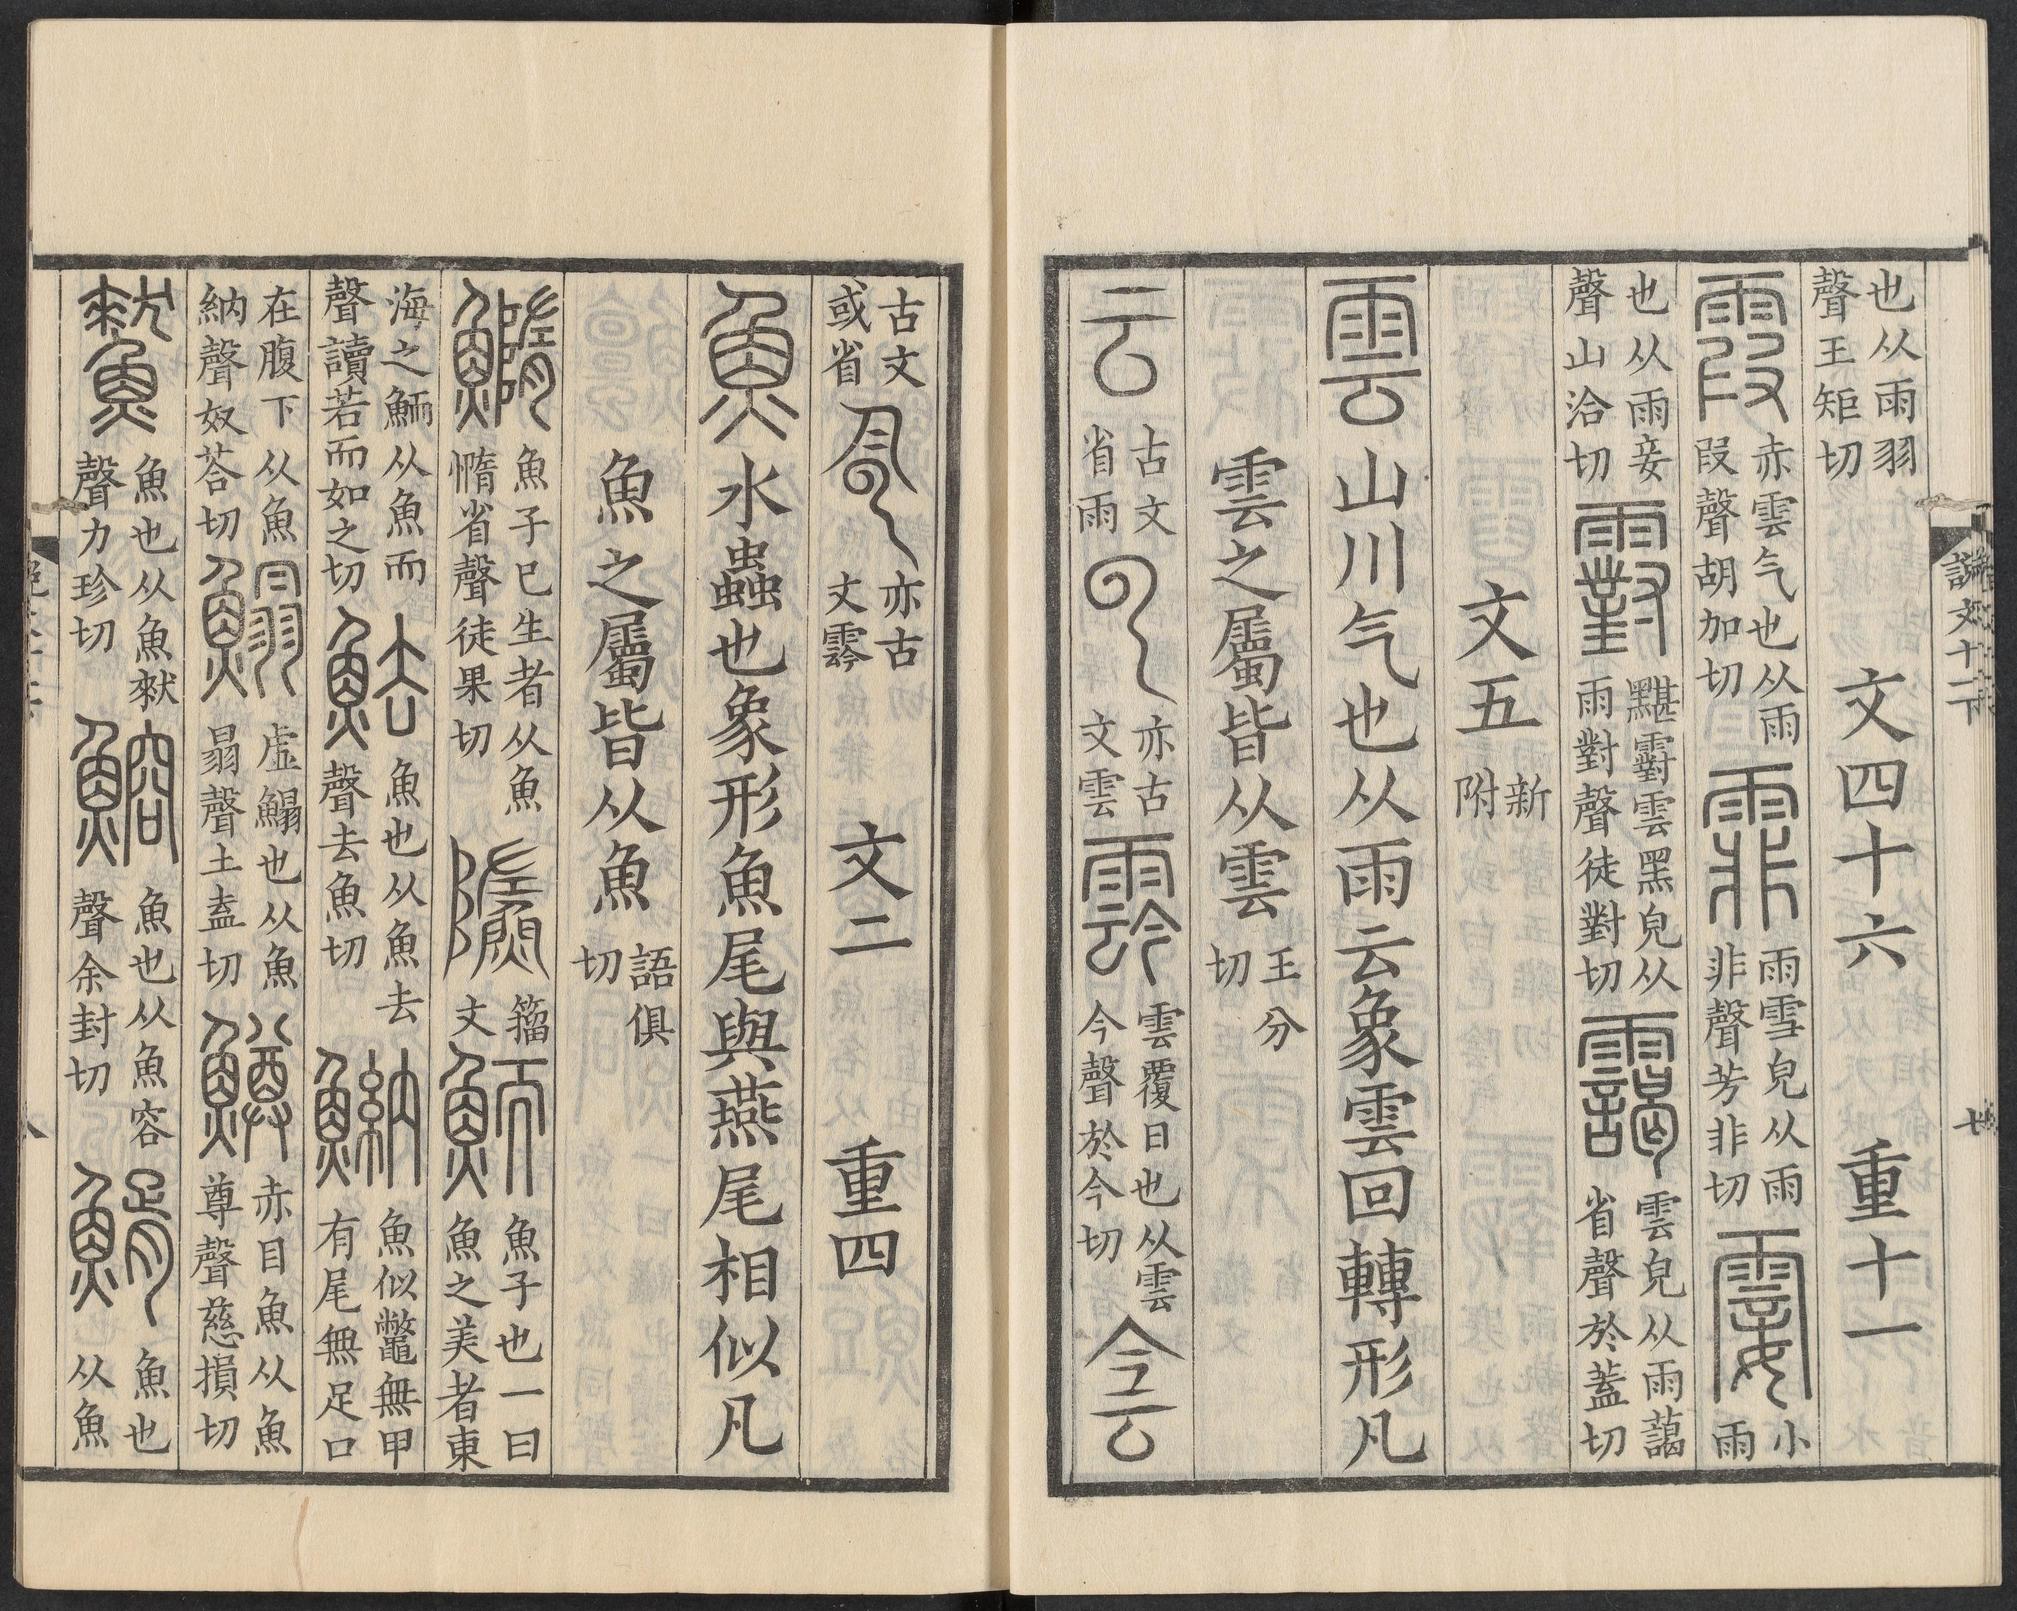 也从雨羽
聲王矩切
文四十六　重十一
霞 赤雲气也从雨
叚聲胡加切
霏 雨雪皃从雨
非聲芳非切
霎 小
雨
也从雨妾
聲山洽切
䨴 黮䨴雲黑皃从
雨對聲徒對切
靄 雲皃从雨藹
省聲於蓋切
文五 新
附
雲 山川气也从雨云象雲回轉形凡
雲之屬皆从雲 王分
切
云 古文
省雨
亦古
文雲
霒 雲覆日也从雲
今聲於今切
侌
古文
或省
亦古
文霒
文二　重四
魚 水蟲也象形魚尾與燕尾相似凡
魚之屬皆从魚 語俱
切
鱦 魚子已生者从魚
惰省聲徒果切
籀
文
鮞 魚子也一曰
魚之美者東
海之鮞从魚而
聲讀若而如之切
魼 魚也从魚去
聲去魚切
魶 魚似鼈無甲
有尾無足口
在腹下从魚
納聲奴荅切
鰨 虛鰨也从魚
𦐇聲土盍切
鱒 赤目魚从魚
尊聲慈損切
魚也从魚㷠
聲力珍切
鰫 魚也从魚容
聲余封切
魚也
从魚
說文十一下
七
八